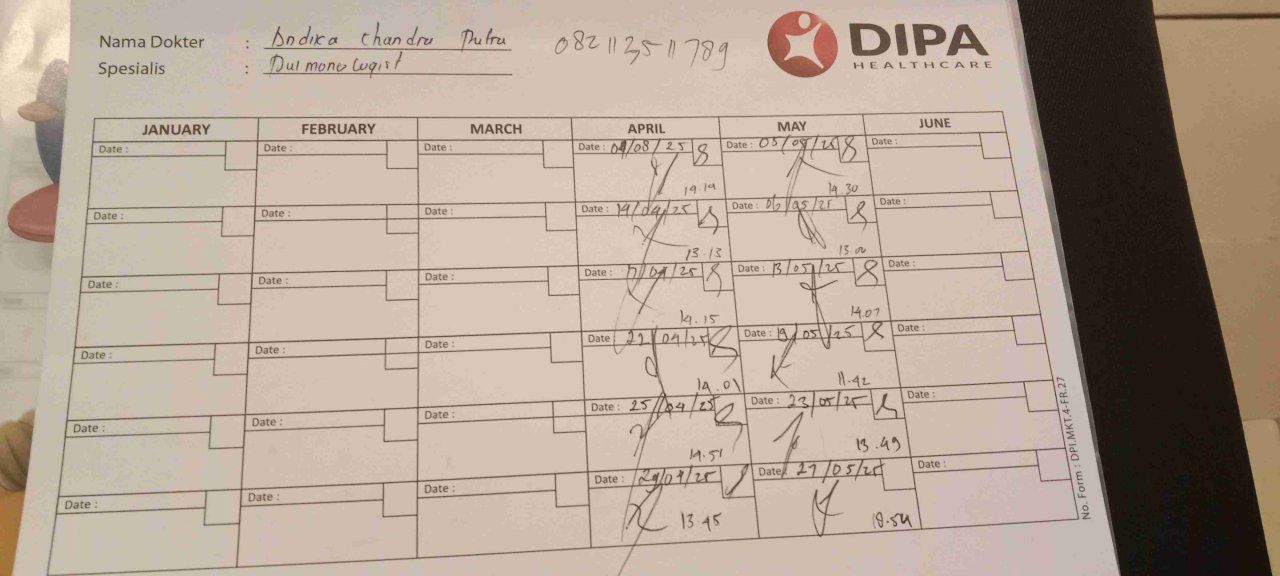 Nama Dokter : Andika Chandra Putra 082113511789
Spesialis : Pulmonologist
DIPA
HEALTHCARE
JANUARY FEBRUARY MARCH APRIL MAY JUNE
Date : Date : Date : Date : 04/08/25 Date : 05/05/25 Date :
14.14 14.30
Date : Date : Date : Date : 14/04/25 Date : 06/05/25 Date :
13.13 13.00
Date : Date : Date : Date : 17/04/25 Date : 13/05/25 Date :
14.15 14.07
Date : Date : Date : Date : 22/04/25 Date : 19/05/25 Date :
14.01 11.42
Date : Date : Date : Date : 25/04/25 Date : 23/05/25 Date :
14.51 13.49
Date : Date : Date : Date : 29/04/25 Date : 27/05/25 Date :
13.45 18.54
No. Form : DPI.MKT.4-FR.27